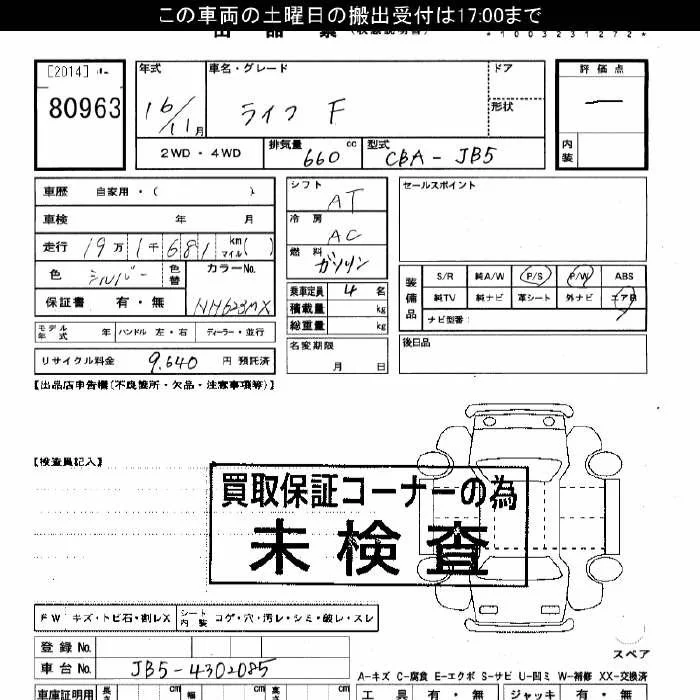 この車両の土曜日の搬出受付は17:00まで
出品票
*10032312772*
[2014]
80963
年式 16/11月
車名・グレード ライフ F
ドア
形状
評価点 ー
内装
2WD・4WD
排気量 660 cc
型式 CBA-JB5
車歴 自家用・( )
車検 年 月
走行 19万1千681 km マイル( )
色 シルバー 色替
カラーNo. NH623MX
保証書 有・無
シフト AT
冷房 AC
燃料 ガソリン
乗車定員 4 名
積載量 kg
総重量 kg
セールスポイント
装備品
S/R 純A/W P/S P/W ABS
純TV 純ナビ 革シート 外ナビ エアB
ナビ型番:
モデル年式 年 ハンドル 左・右 ディーラー・並行
リサイクル料金 9,640 円 預託済
名変期限 月 日
後日品
【出品店申告欄(不良箇所・欠品・注意事項等)】
【検査員記入】
買取保証コーナーの為
未検査
FW キズ・トビ石・割レX
シート内装 コゲ・穴・汚レ・シミ・破レ・スレ
スペア
登録No.
車台No. JB5-4302085
A-キズ C-腐食 E-エクボ S-サビ U-凹ミ W-補修 XX-交換済
車庫証明用 長さ cm 幅 cm 高さ cm
工具 有・無 ジャッキ 有・無